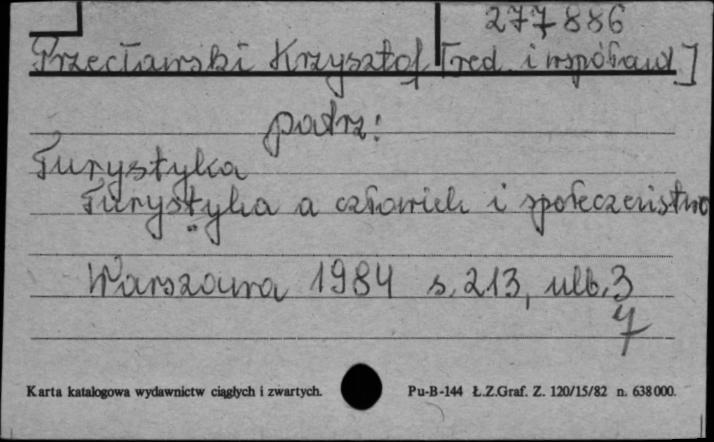 277886
Przecławski Krzysztof [red. i współaut.]
patrz:
Turystyka
Turystyka a człowiek i społeczeństwo
Warszawa 1984 s. 213, ulb. 3
7
Karta katalogowa wydawnictw ciągłych i zwartych. Pu-B-144 Ł.Z.Graf. Z. 120/15/82 n. 638000.